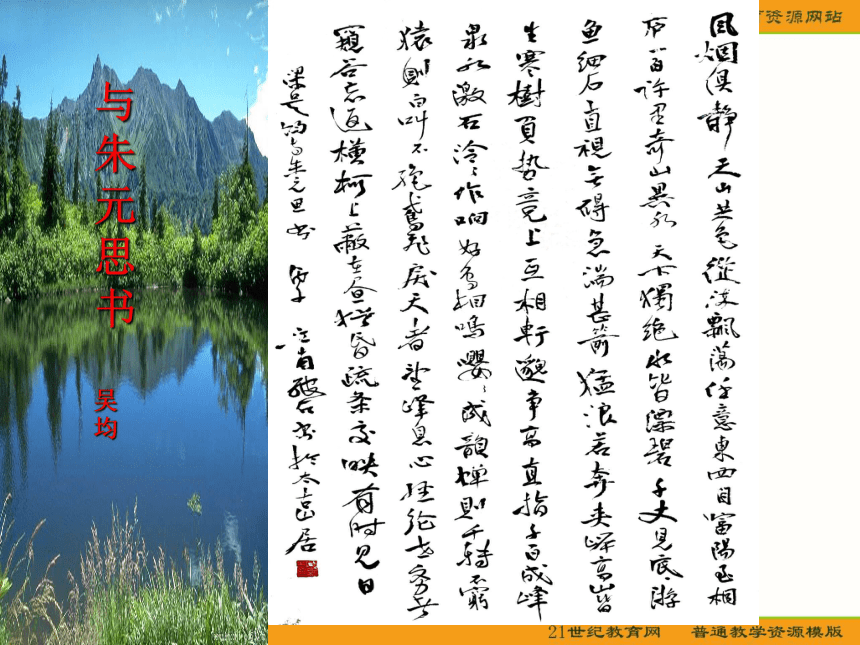 与朱元思书
吴均
風烟俱静天山共色從流飄蕩任意東西自富陽至桐
庐一百许里奇山異水天下獨绝水皆漂碧千丈見底游
鱼细石直視無碍急湍甚箭猛浪若奔夹岸高山皆
生寒樹負势竞上互相轩邈争高直指千百成峰
泉水激石泠泠作响好鸟相鳴嘤嘤成韻蝉則千转不窮
猿則百叫不绝鸢飛戾天者望峰息心经纶世务者
窺谷忘返横柯上蔽在昼犹昏疏条交映有时見日
梁吴均与朱元思书
资源网站
21世纪教育网 普通教学资源模版